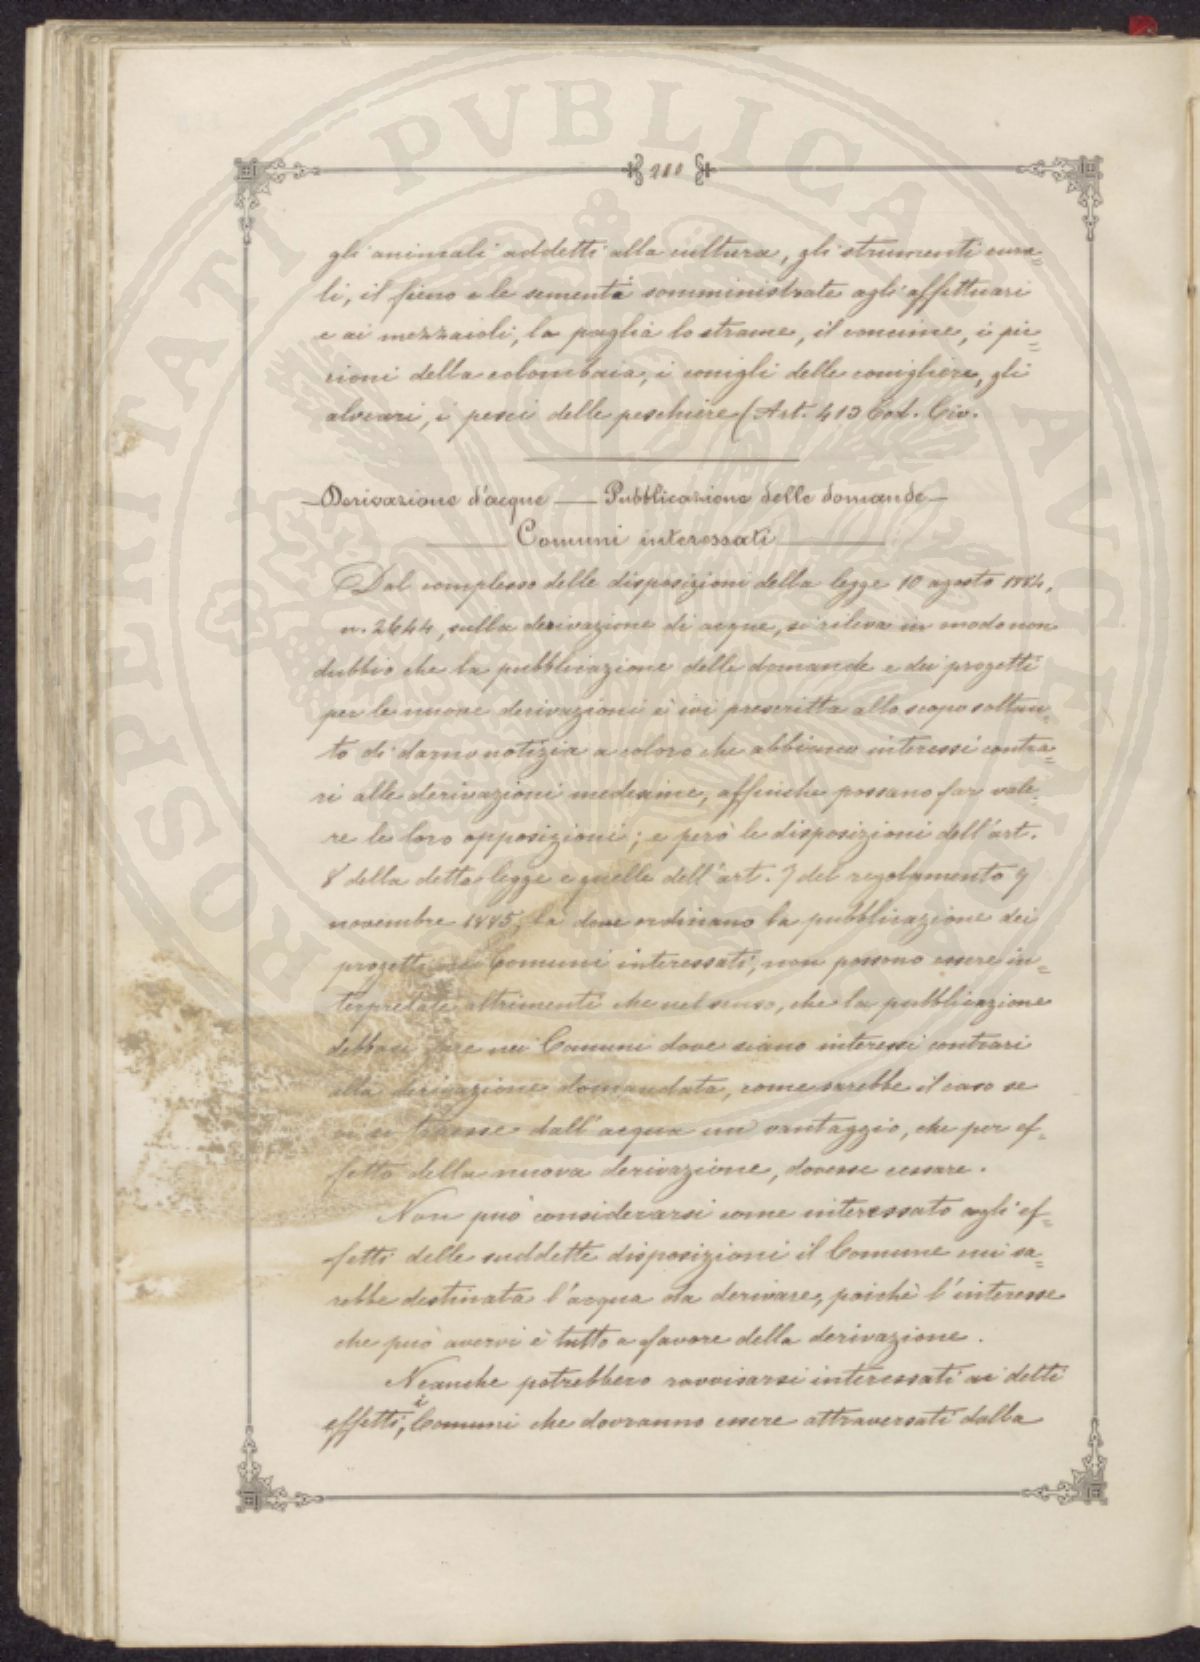 PROSPERITATI PUBLICAE AUGENDAE
210
gli animali addetti alla cultura, gli strumenti rura=
li, il fieno e le sementi somministrate agli affittuari
e ai mezzaioli, la paglia lo strame, il concime, i pic=
cioni della colombaia, i conigli delle conigliere, gli
alveari, i pesci delle peschiere (Art. 413 Cod. Civ.
— Derivazione d'acque — Pubblicazione delle domande —
— Comuni interessati —
Dal complesso delle disposizioni della legge 10 agosto 1884,
n. 2644, sulla derivazione di acque, si rileva in modo non
dubbio che la pubblicazione delle domande e dei progetti
per le nuove derivazioni è ivi prescritta allo scopo soltan=
to di darne notizia a coloro che abbiano interessi contra=
ri alle derivazioni medesime, affinchè possano far vale=
re le loro opposizioni; e però le disposizioni dell'art.
8 della detta legge e quelle dell'art. 7 del regolamento 9
novembre 1885, la dove ordinano la pubblicazione dei
progetti nei Comuni interessati, non possono essere in=
terpretate altrimenti che nel senso, che la pubblicazione
debbasi fare nei Comuni dove siano interessi contrari
alla derivazione domandata, come sarebbe il caso se
vi si traesse dall'acqua un vantaggio, che per ef=
fetto della nuova derivazione, dovesse cessare.
Non può considerarsi come interessato agli ef=
fetti delle suddette disposizioni il Comune cui sa=
rebbe destinata l'acqua da derivare, poichè l'interesse
che può avervi è tutto a favore della derivazione.
Neanche potrebbero ravvisarsi interessati ai detti
effetti, i Comuni che dovranno essere attraversati dalla